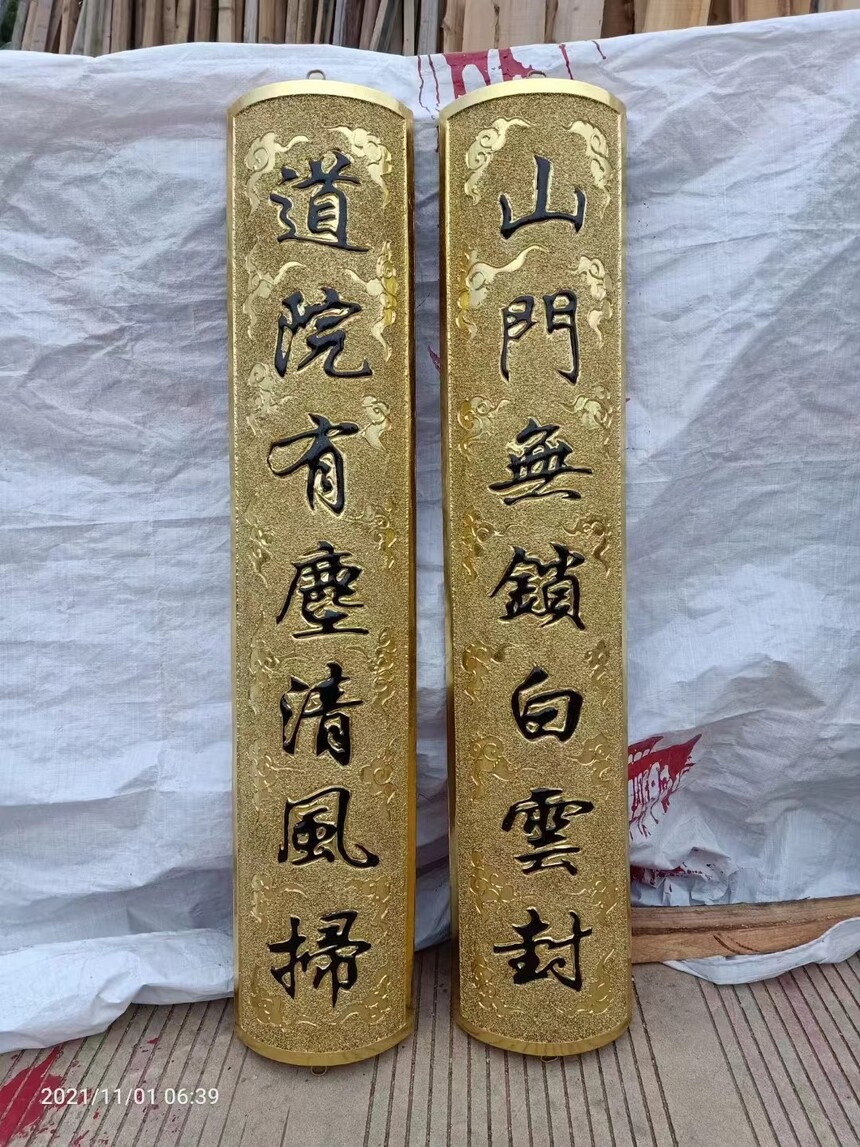 山門無鎖白雲封
道院有塵清風掃
2021/11/01 06:39